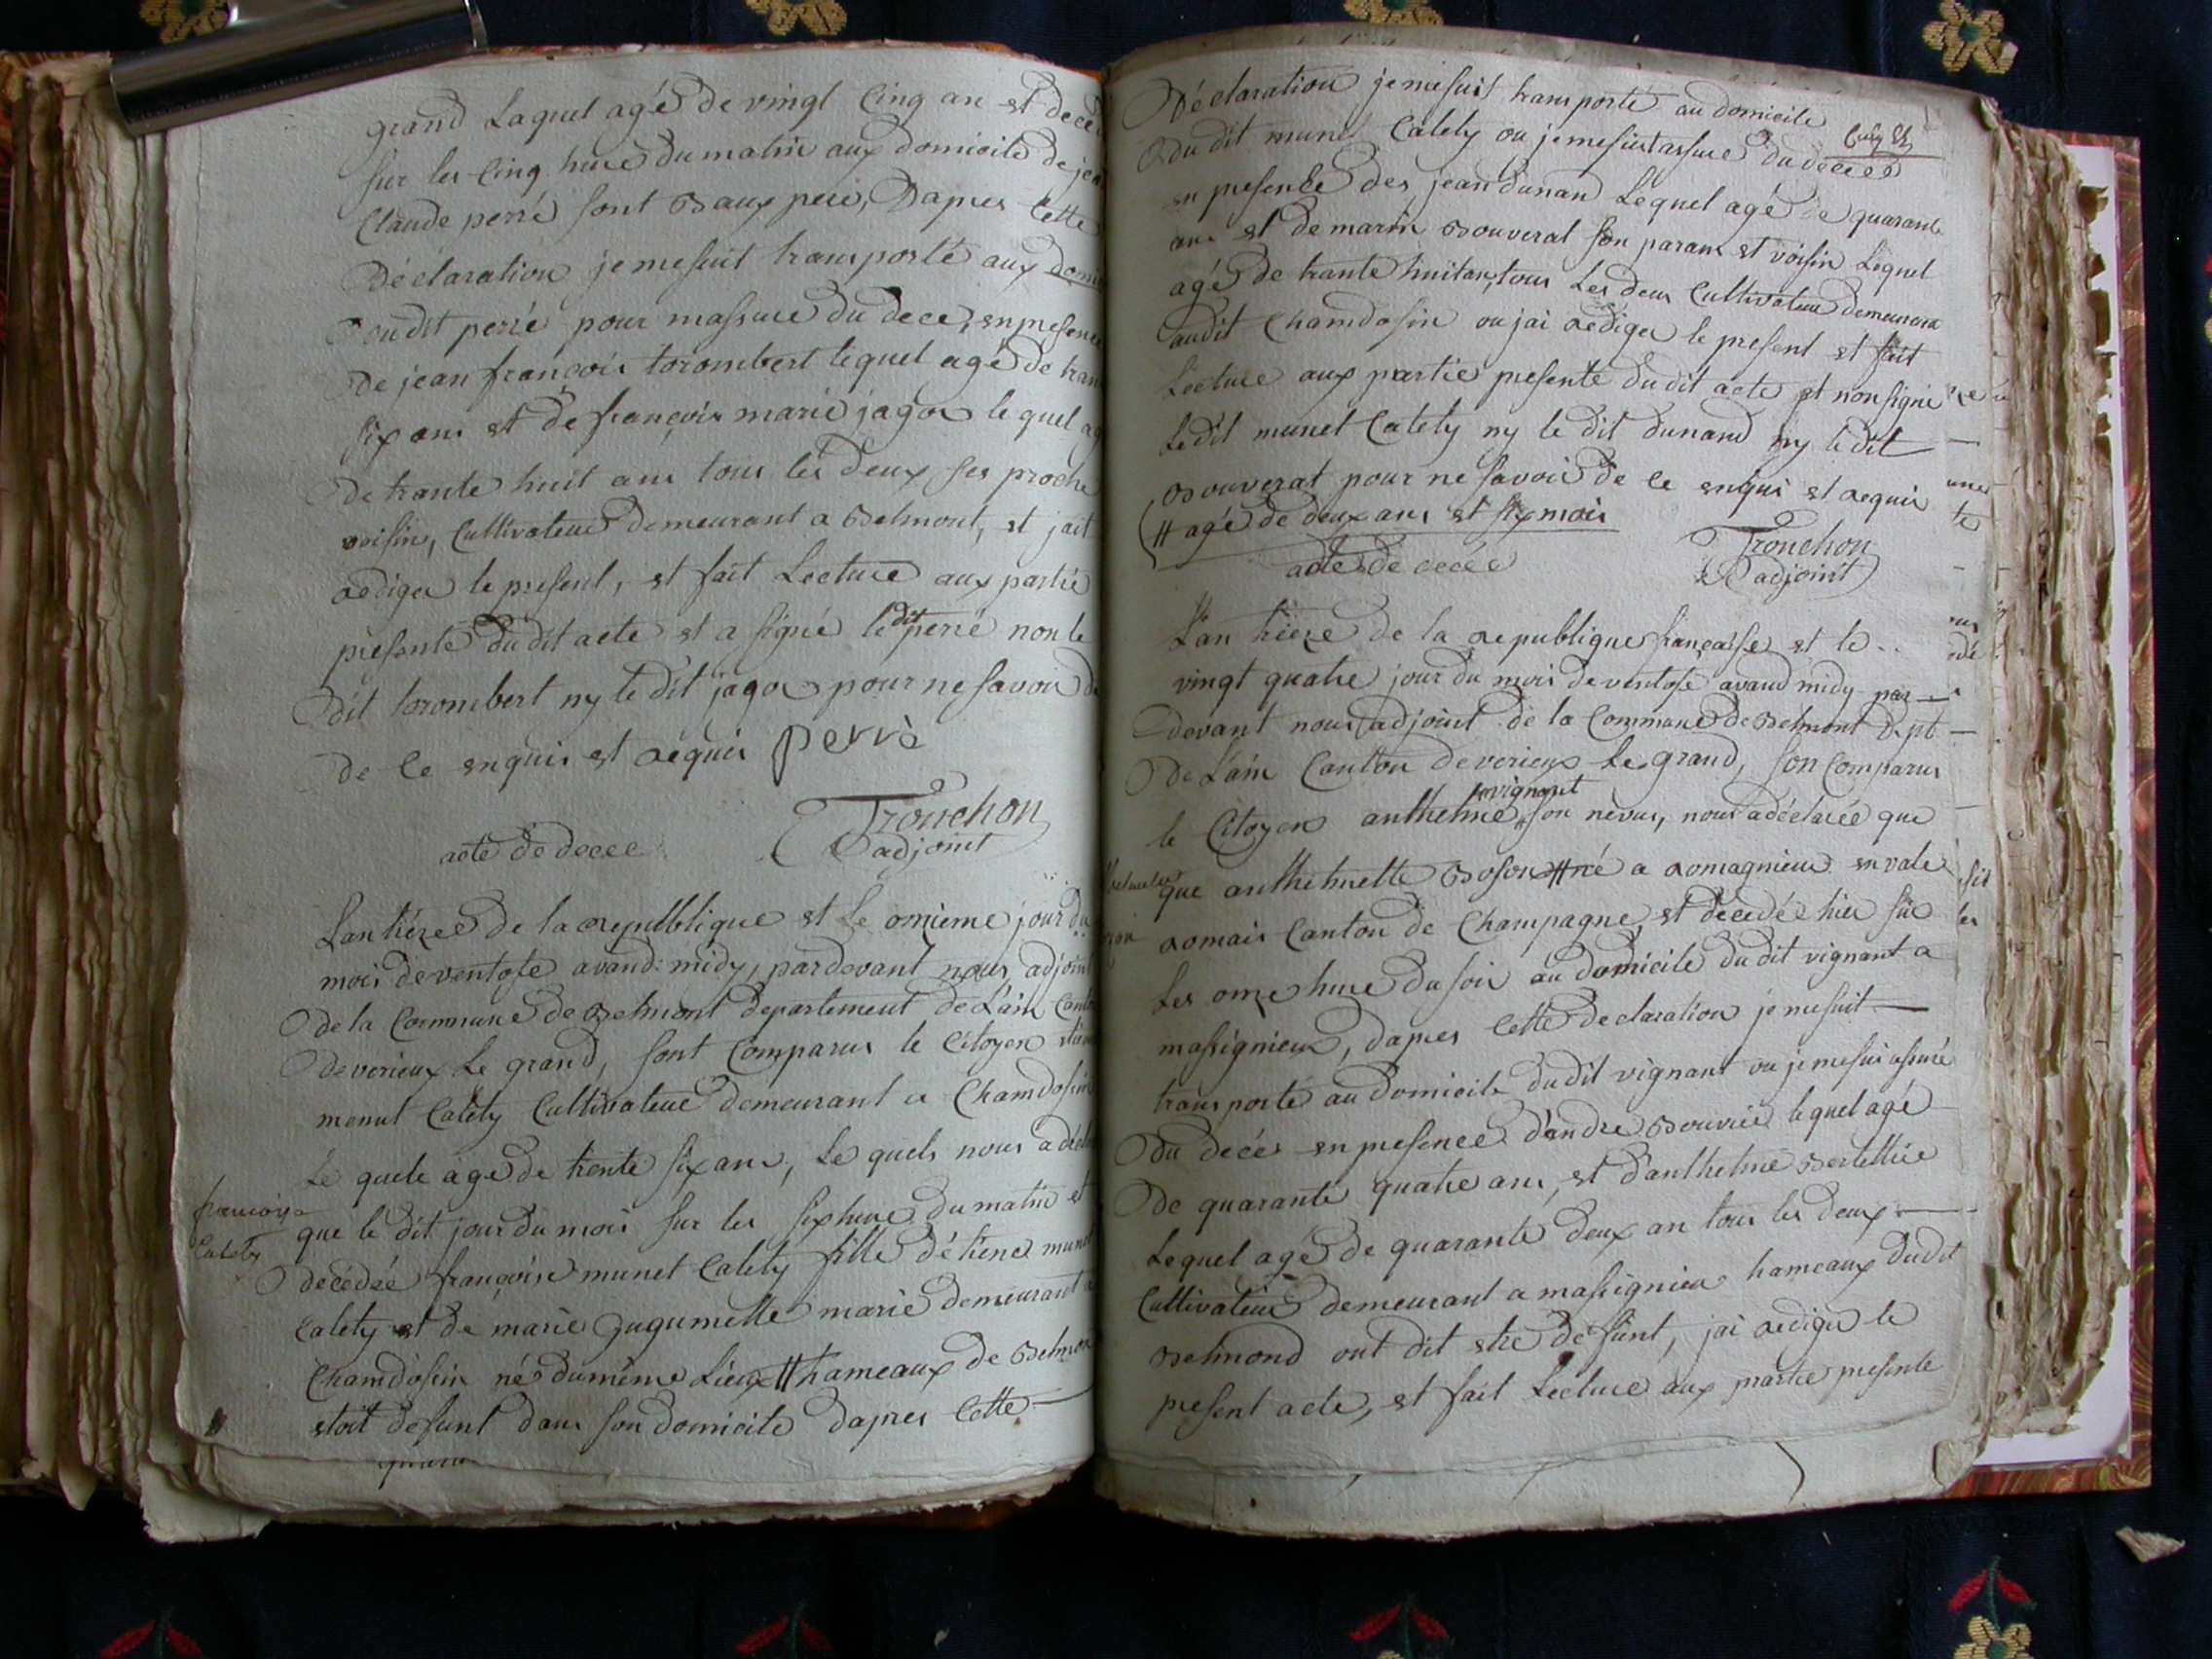 grand Laquel agé de vingt Cinq an et deced
sur les Cinq hure du matin aux domicile de jea
Claude perré sont Beaux pere, Dapres Cette
Déclaration je mesuit transporté aux domi
dudit perré pour massure du dece, en presence
de jean françois torombert lequel agé de tran
six ans et de françois marie jagou le quel ag
de trante huit ans tous les deux ses proche
voisin, Cultivateur demeurant a Belmont, et jait
rediger le present, et fait Lecture aux partie
presente dudit acte et a signé le dit perré non le
dit torombert ny le dit jagou pour ne savoir de
de ce enquis et requis perrè
Trouchon
adjoint
acte de decee
Lan tréze de la republique et le onzieme jour du
mois de ventose avand midy, pardevant nous adjoint
de la Commune de Belmont departement de L'ain Canto
de verieux Le grand, sont Comparus le Citoyen
menut Catety Cultivateur demeurant a Chamdosin
Le quele agé de trente six ans, Le quels nous a décla
françoise
Catety
que le dit jour du mois sur les six hure du matin et
decédée françoise munet Catety fille détiene munet
Catety et de marie gugumette marié demeurant a
Chamdosin né du même Lieux # hameaux de Belmon
etoit defunt dans son domicile dapres Cette
Déclaration je mesuit transporté au domicile
du dit munet Catety ou je mesuit assure du décée
en presence des jean dunan Lequel agé de quarante
ans et de marin Bouverat son parans et voisin Lequel
agé de trante huitan, tous Les deux Cultivateur demeurant
audit Chamdosin ou jai rediger le present et fait
Lecture aux partie presente du dit acte et non signé
Ledit munet Catety ny le dit dunand ny le dit
Bouverat pour ne savoir de ce enquis et requis
# agé de deux ans et six mois
Trouchon
adjoint
acte de decée
L'an treze de la republique française et le ..
vingt quatre jour du mois de ventose avand midy par
devant nous adjoint de la Commune de Belmont Dpt
De L'ain Canton de verieux Le grand, son Comparus
le Citoyen anthelme vignant son nevus, nous a déclarée que
que anthelmette Boson # né a romagnieux en vale
romais Canton de Champagne, et decedée hier sur
Les onze hure du soir au domicile du dit vignant a
massignieux, dapres Cette declaration je mesuit
transporté au domicile du dit vignant ou je mesui assuré
Du decés en presence d'andre Bouvier lequel agé
De quarante quatre ans, et d'anthelme Berthelier
Lequel agé de quarante deux an tous les deux
Cultivateur demeurant a massignieu hameaux dudit
Belmond ont dit etre defunt, jai rediger le
present acte, et fait Lecture aux partie presente